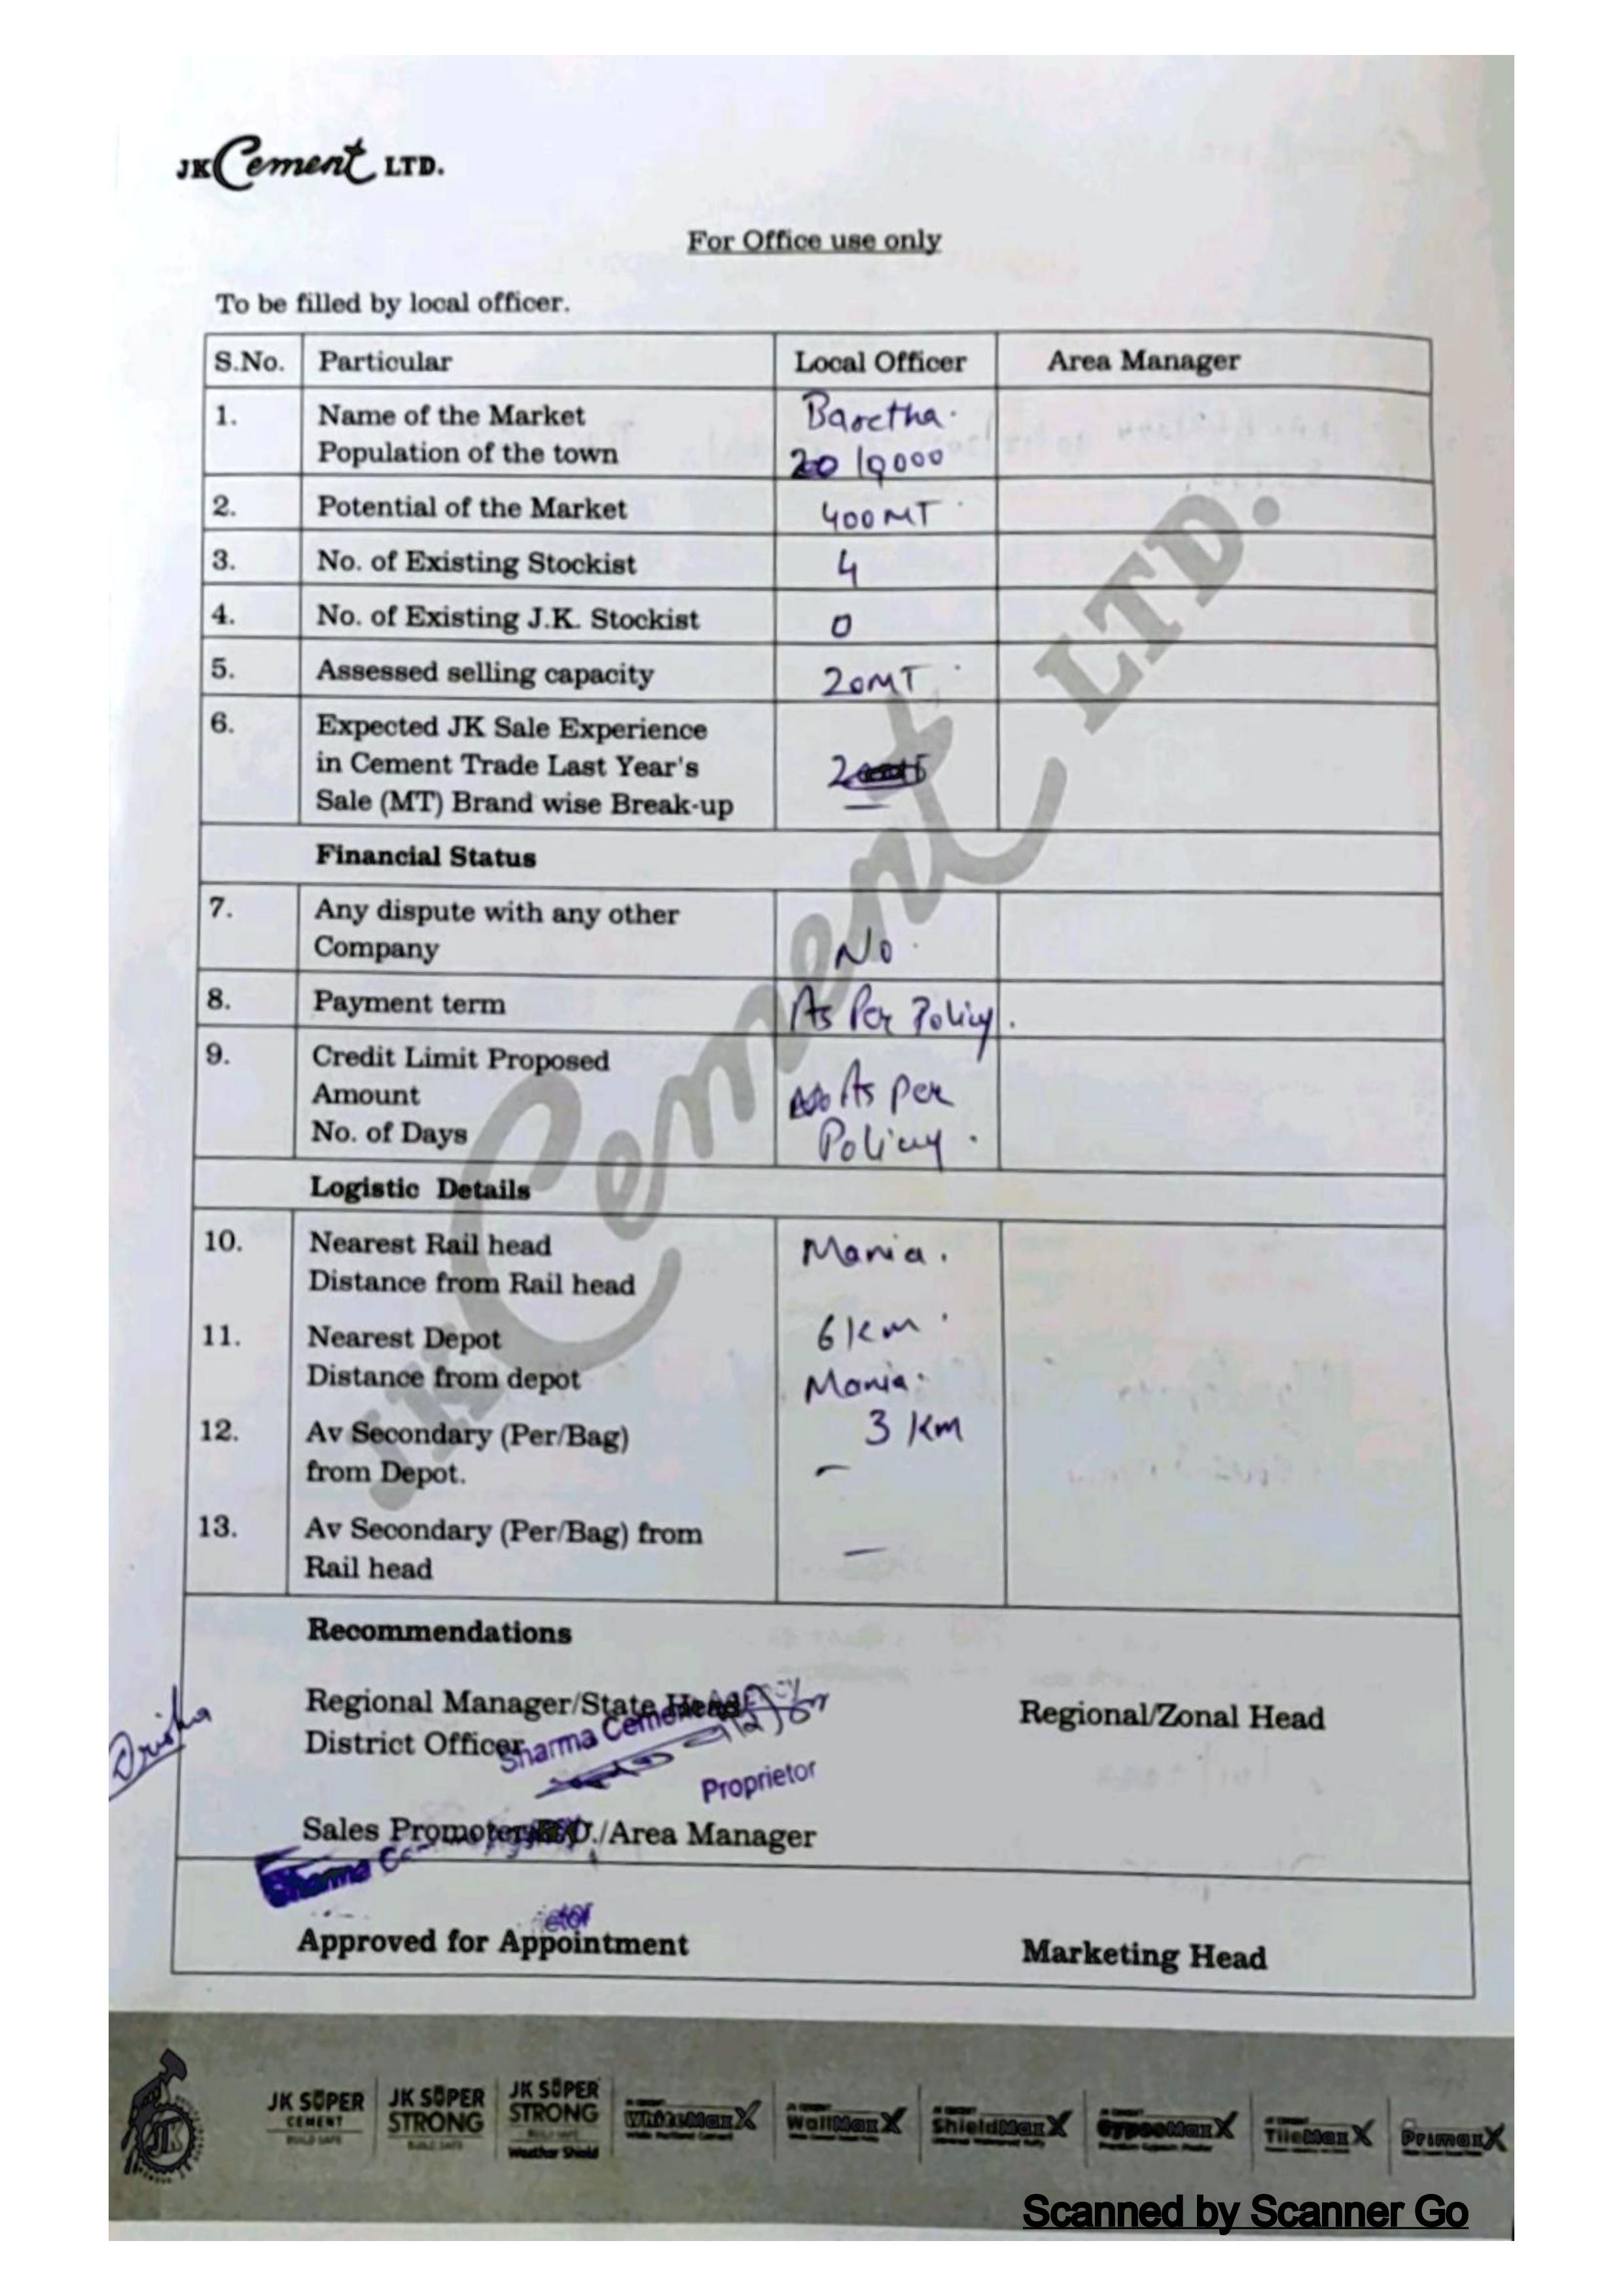 JK Cement LTD.
For Office use only
To be filled by local officer.
S.No. Particular Local Officer Area Manager
1. Name of the Market Baretha.
Population of the town 10000
2. Potential of the Market 400 MT
3. No. of Existing Stockist 4
4. No. of Existing J.K. Stockist 0
5. Assessed selling capacity 20MT
6. Expected JK Sale Experience
in Cement Trade Last Year's
Sale (MT) Brand wise Break-up —
Financial Status
7. Any dispute with any other
Company No
8. Payment term As Per Policy.
9. Credit Limit Proposed
Amount As Per
No. of Days Policy.
Logistic Details
10. Nearest Rail head Mania.
Distance from Rail head
11. Nearest Depot 6 km
Distance from depot Mania.
12. Av Secondary (Per/Bag) 3 km
from Depot. —
13. Av Secondary (Per/Bag) from —
Rail head
Recommendations
Regional Manager/State Head Regional/Zonal Head
District Officer
Sharma Cement Agency
Proprietor
Sales Promoter/ /Area Manager
Sharma
Approved for Appointment Marketing Head
JK SUPER CEMENT BUILD SAFE
JK SUPER STRONG BUILD SAFE
JK SUPER STRONG BUILD SAFE Weather Shield
WhiteMaxX
WallMaxX
ShieldMaxX
GypsoMaxX
TileMaxX
PrimaxX
Scanned by Scanner Go
JK Cement LTD.